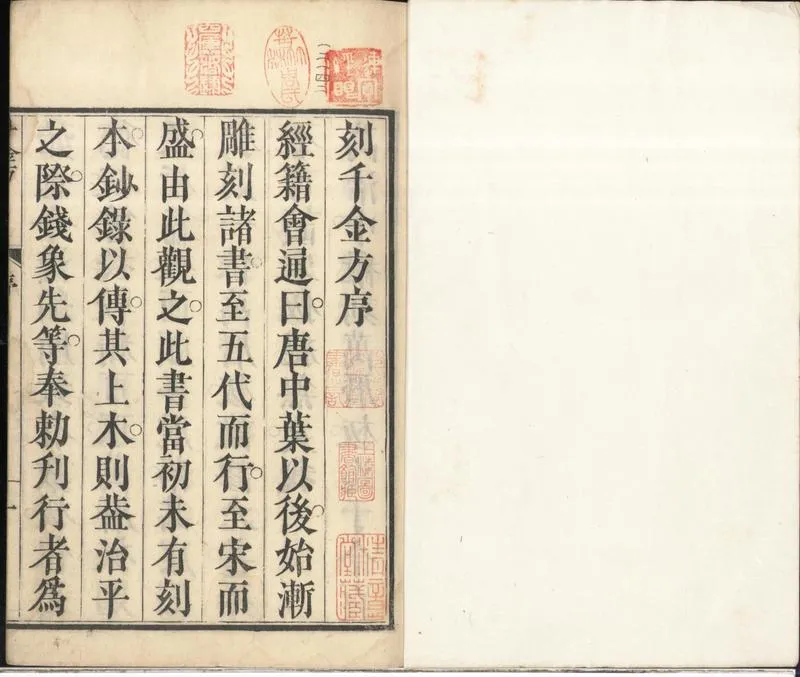 刻千金方序
經籍會通曰。唐中葉以後。始漸
雕刻諸書。至五代而行。至宋而
盛。由此觀之。此書當初未有刻
本。鈔錄以傳。其上木。則葢治平
之際。錢象先等。奉勅刋行者爲
序
一
上海圖書館藏